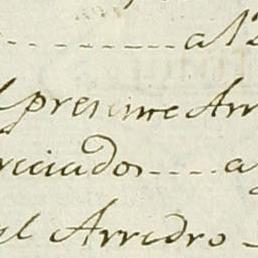 a 12
presente Arr
reciados a
el Arredro